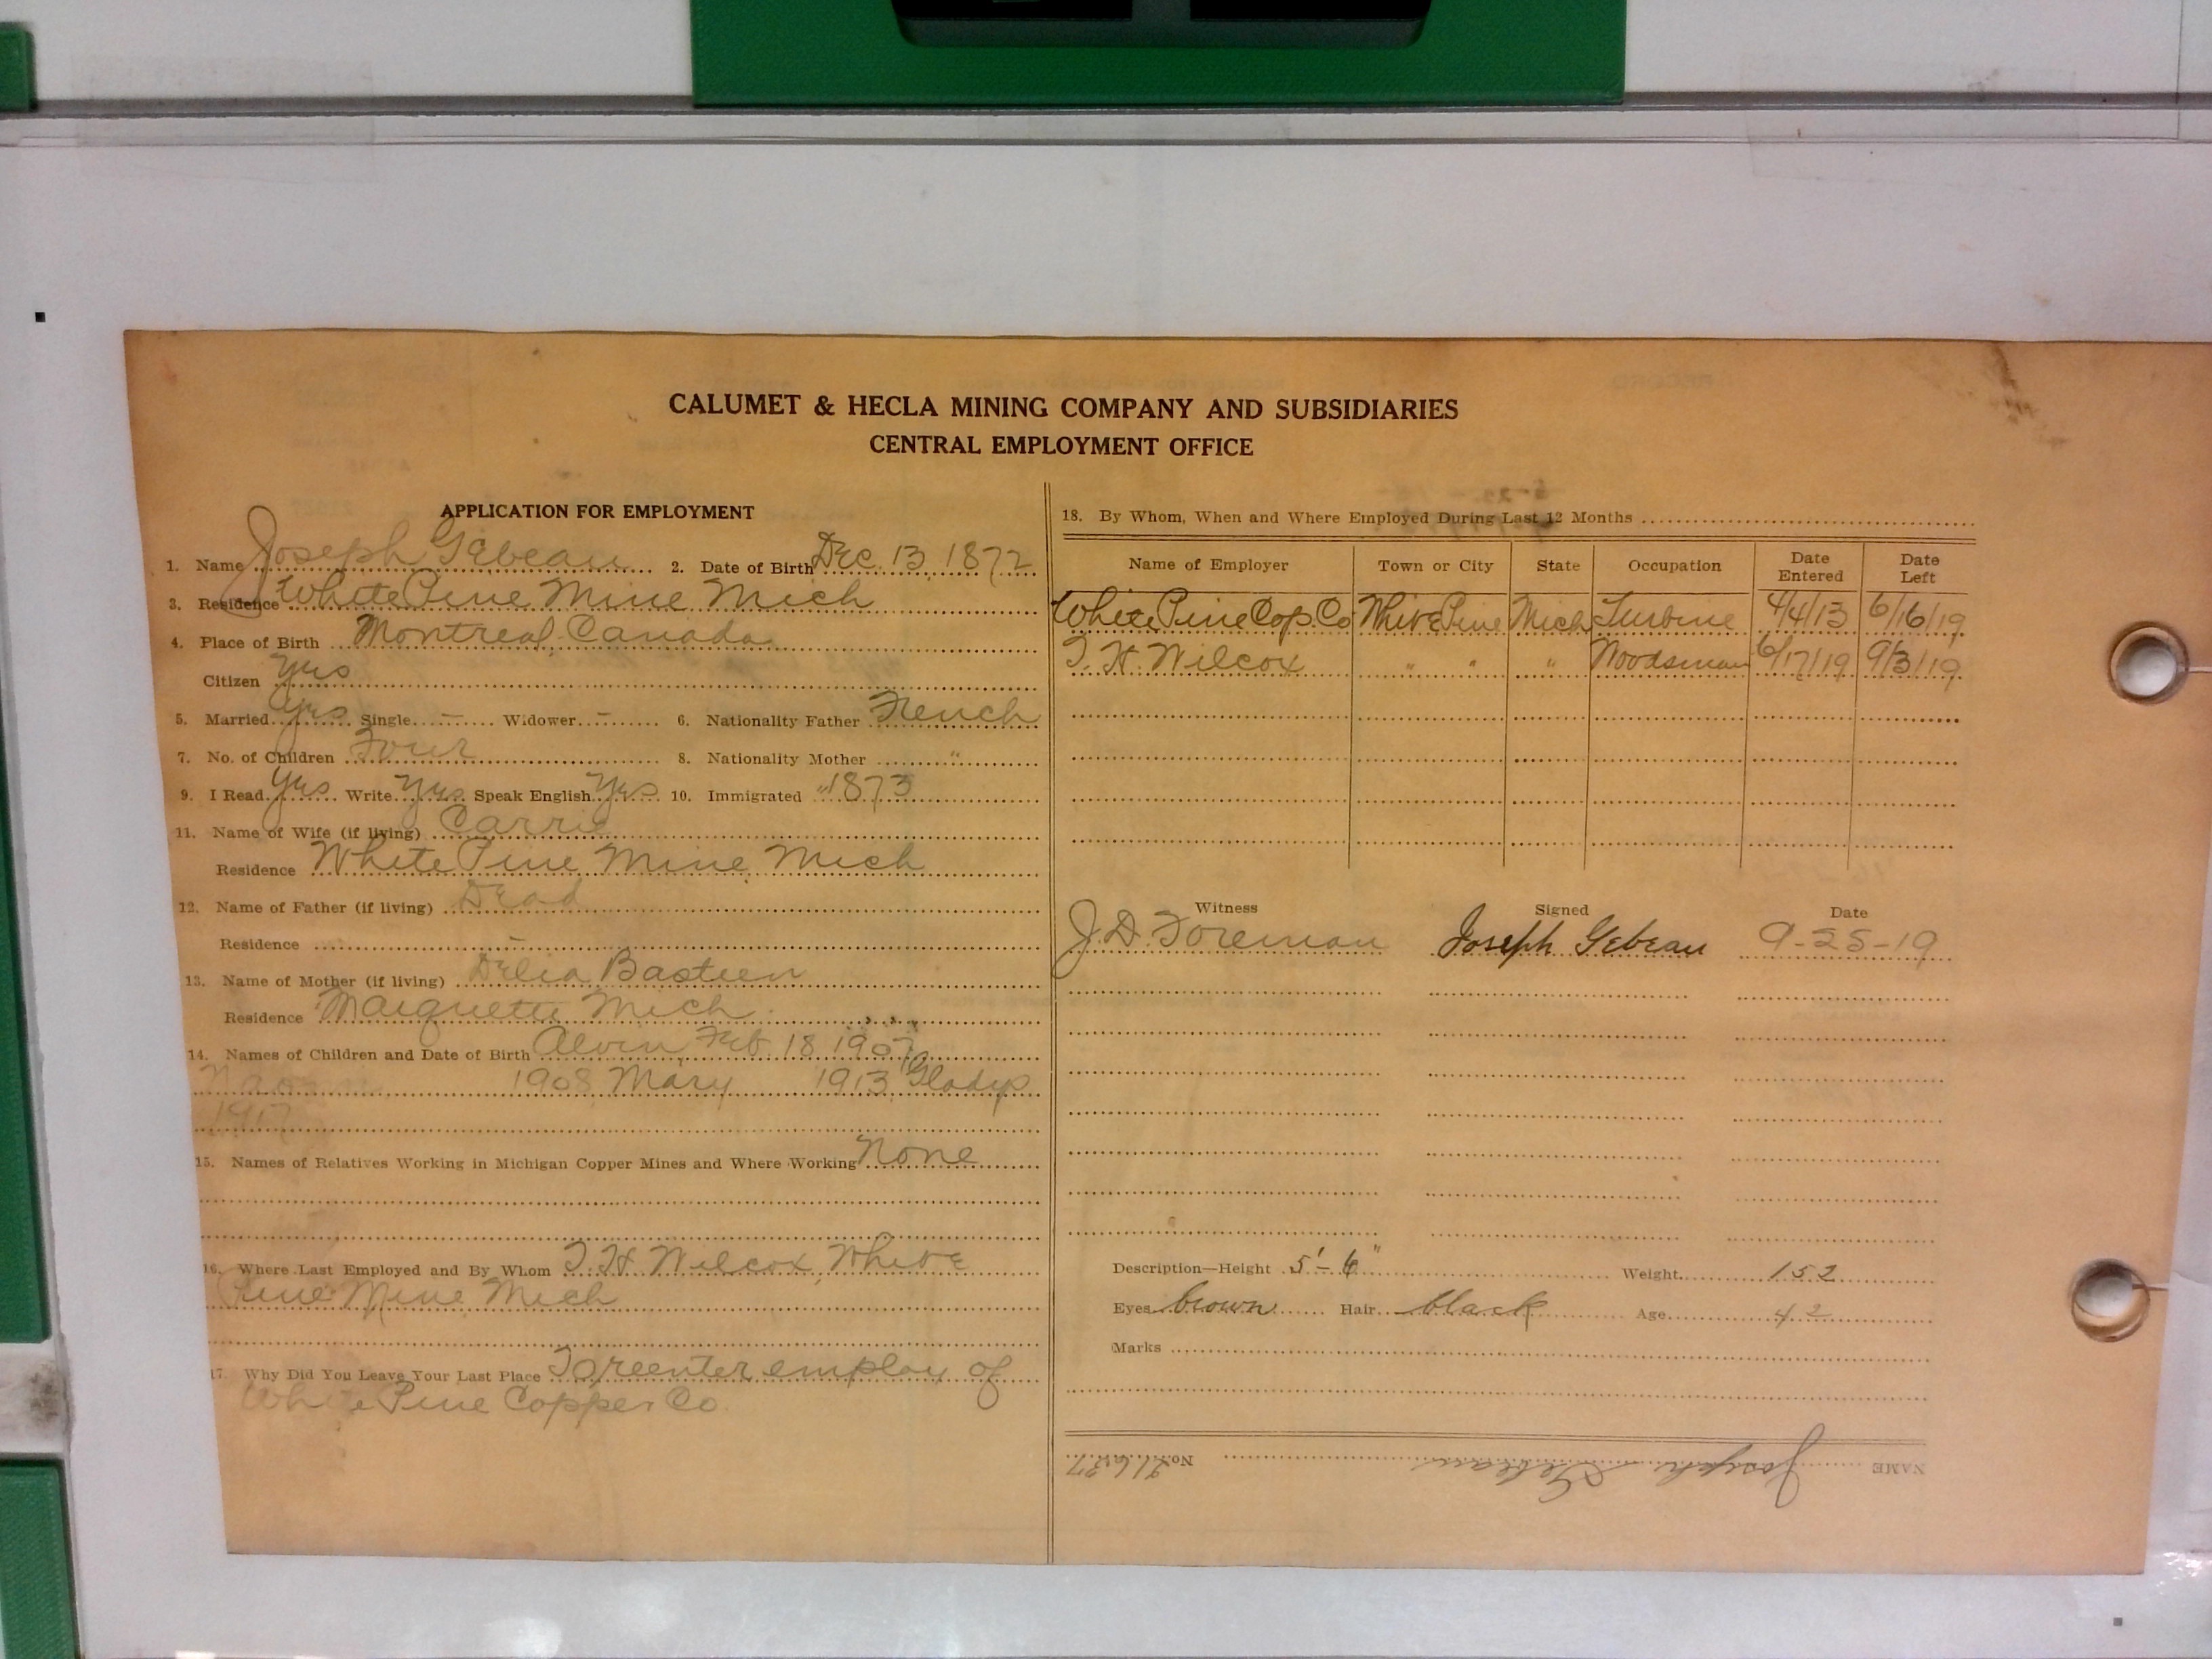 CALUMET & HECLA MINING COMPANY AND SUBSIDIARIES
CENTRAL EMPLOYMENT OFFICE
APPLICATION FOR EMPLOYMENT
1. Name Joseph Gebeau 2. Date of Birth Dec. 13, 1872
3. Residence White Pine Mine Mich
4. Place of Birth Montreal Canada
Citizen Yes
5. Married Yes Single - Widower - 6. Nationality Father French
7. No. of Children Four 8. Nationality Mother "
9. I Read Yes Write Yes Speak English Yes 10. Immigrated 1873
11. Name of Wife (if living) Carrie
Residence White Pine Mine, Mich
12. Name of Father (if living) Dead
Residence -
13. Name of Mother (if living) Delia Bastien
Residence Marquette Mich.
14. Names of Children and Date of Birth Alvin, Feb. 18 1907
1908 Mary 1913 Gladys
1917
15. Names of Relatives Working in Michigan Copper Mines and Where Working None
16. Where Last Employed and By Whom T. H. Wilcox, White
Pine Mine Mich
17. Why Did You Leave Your Last Place To reenter employ of
White Pine Copper Co.
18. By Whom, When and Where Employed During Last 12 Months
Name of Employer Town or City State Occupation Date Entered Date Left
White Pine Cop. Co White Pine Mich Turbine 4/4/13 6/16/19
T. H. Wilcox " " " Woodsman 6/17/19 9/3/19
Witness Signed Date
J. D. Foreman Joseph Gebeau 9-25-19
Description—Height 5'-6" Weight 152
Eyes brown Hair black Age 42
Marks
NAME Joseph Gebeau No.